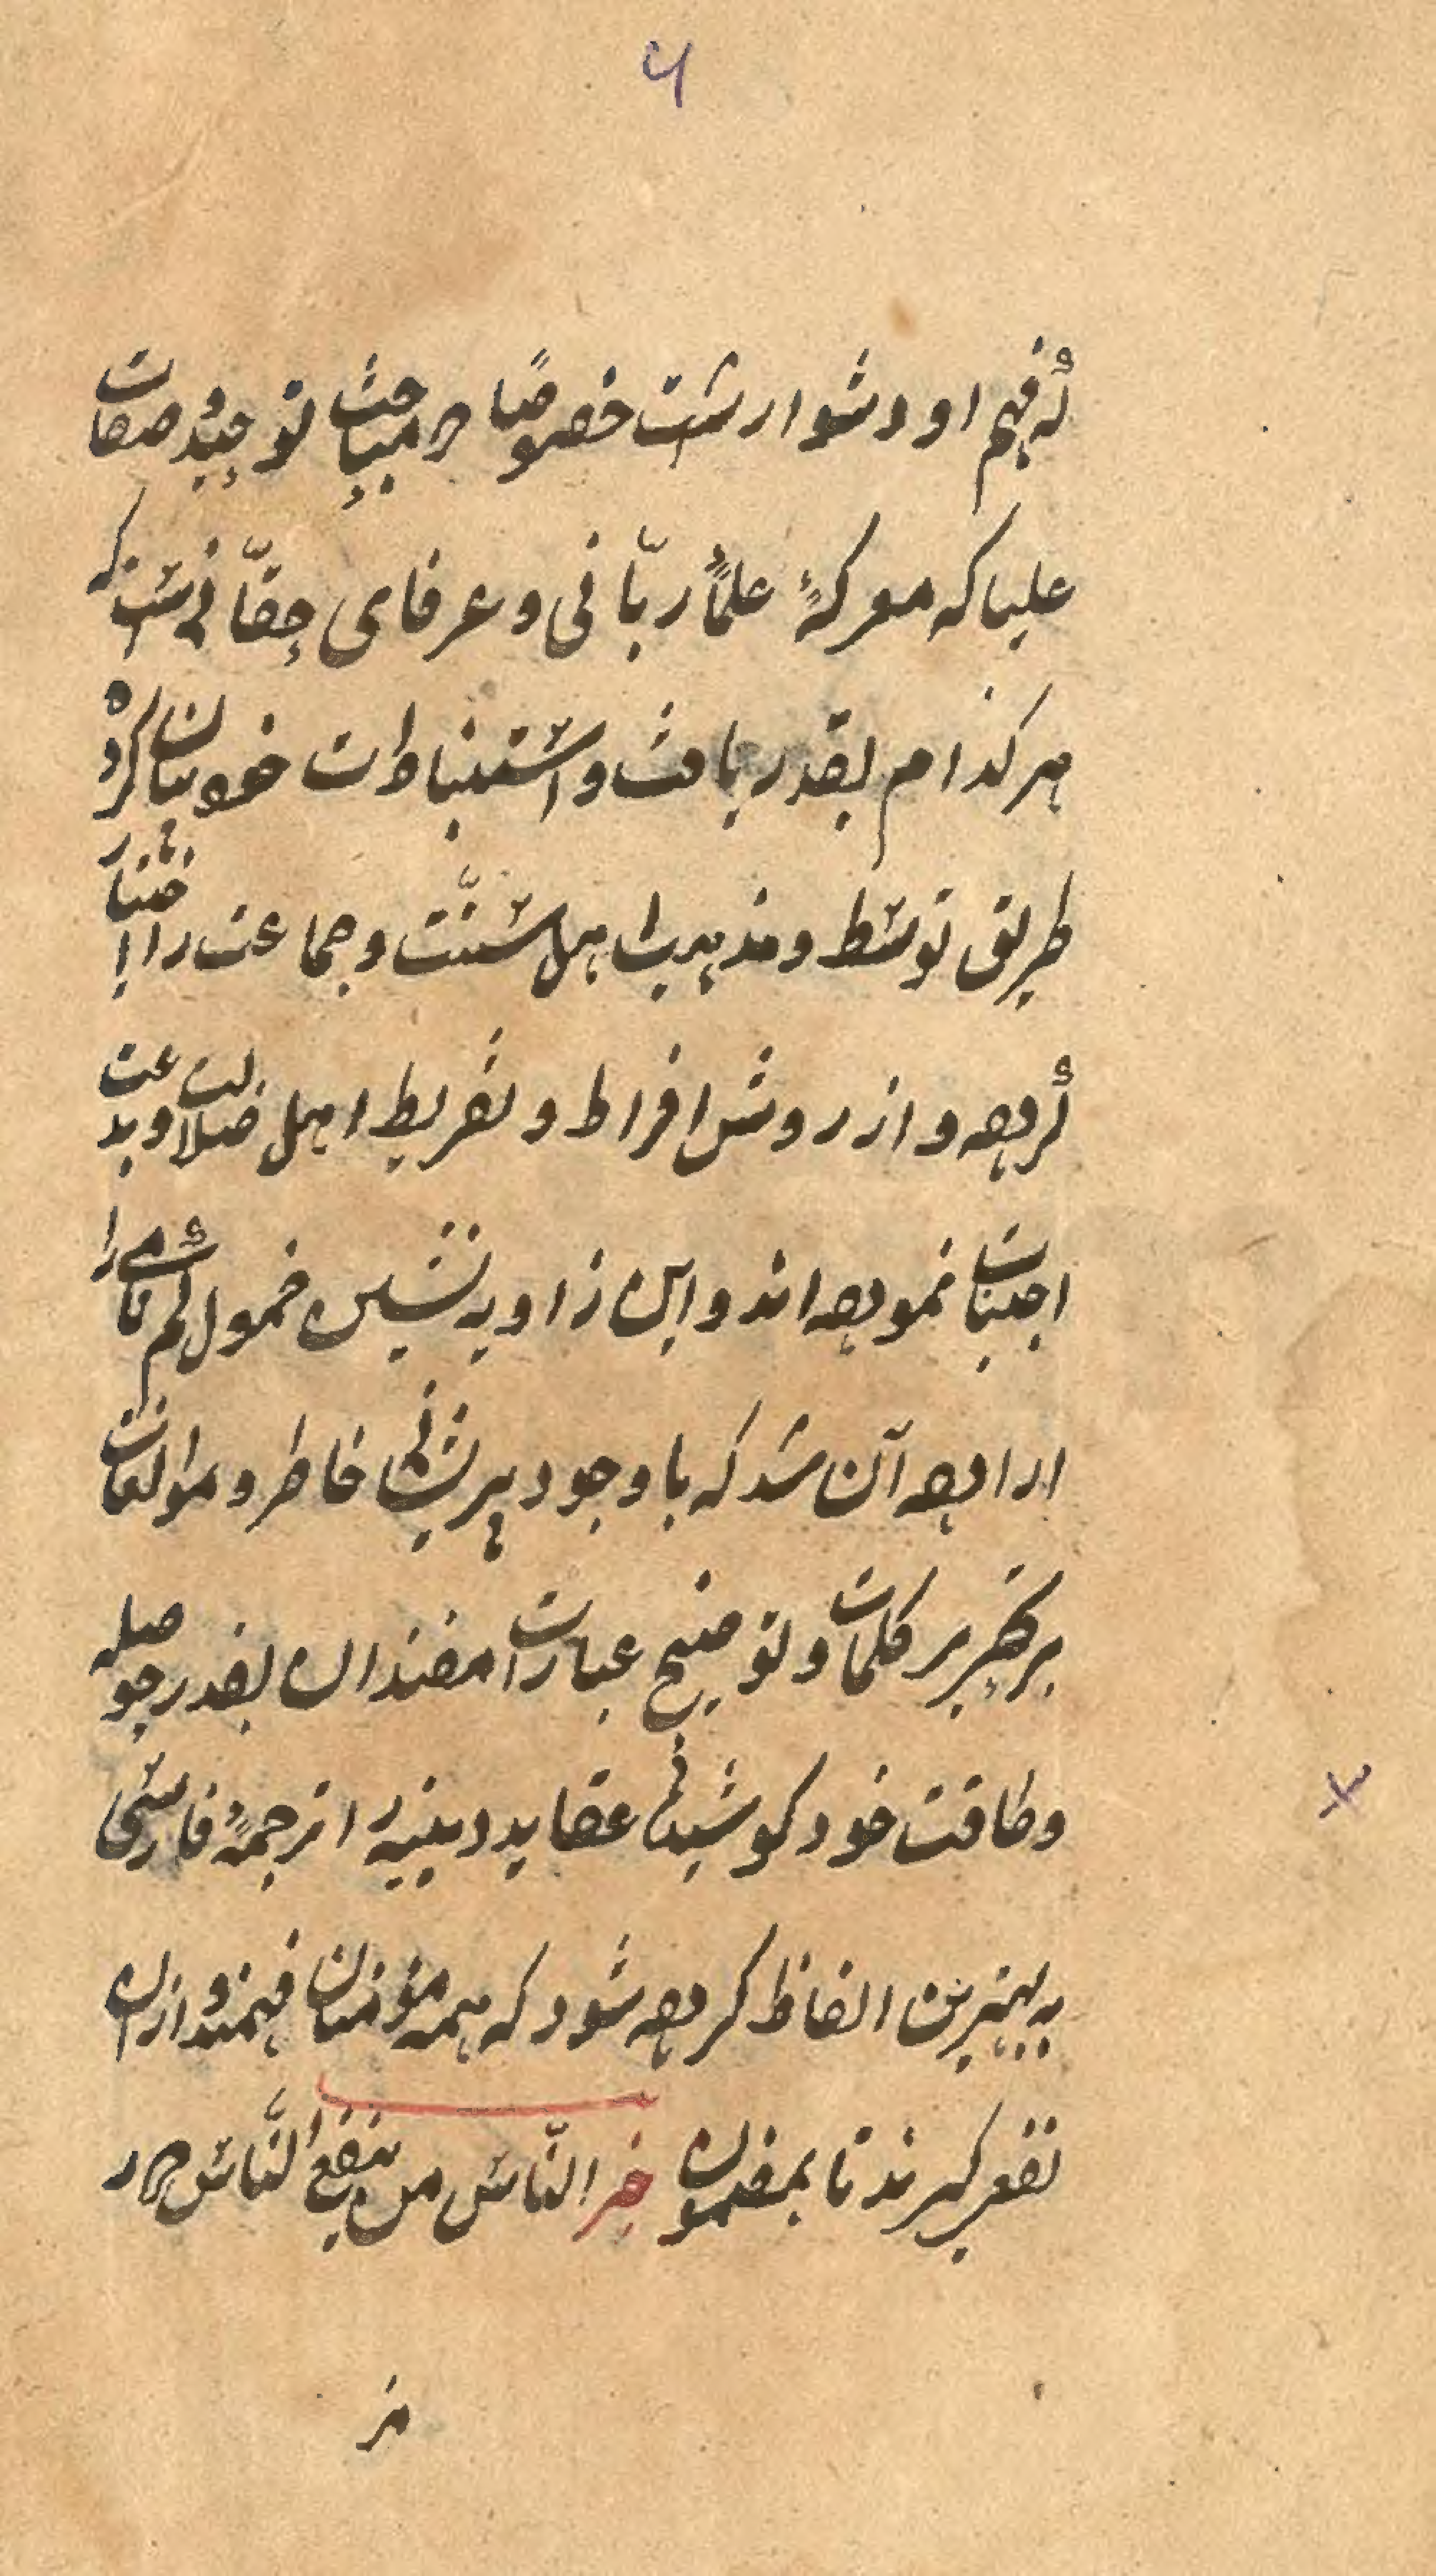 ۶
که فهم او دشوار است خصوصًا در مباحث توحید و صفات
علیا که معرکهٔ علمآ ربّانی و عرفای حقّانی است که
هر کدام بقدر یافت و استنباطات خود بیان کرده
طریق توسط و مذهب اهل سنّت و جماعت را اختیار
کرده و از روش افراط و تفریط اهل ضلالت و بدعت
اجتناب نموده اند و این زاویه نشین خمول گم نامی را
اراده آن شد که با وجود پریشانی خاطر و موانعات
بر تحریر کلمات و توضیح عبارات مفید آن بقدر حوصله
و طاقت خود کوشیده عقاید دینیه را ترجمهٔ فارسی
به بهترین الفاظ کرده شود که همه مؤمنان فهمند و از آن
نفع گیرند تا بمضمون خیر النّاس من ینفع النّاس در